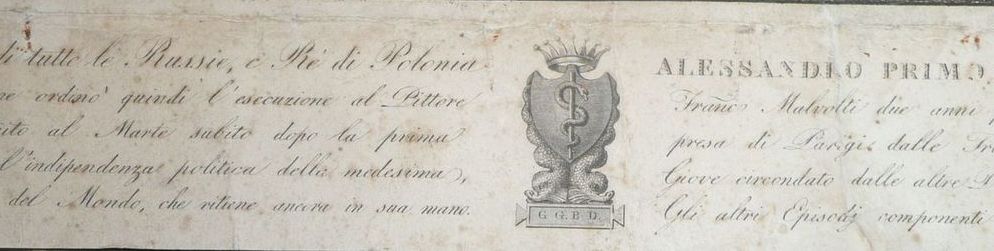 di tutte le Russie, e Ré di Polonia
ne ordinò quindi l'esecuzione al Pittore
al Marte subito dopo la prima
l'indipendenza politica della medesima,
del Mondo, che ritiene ancora in sua mano.
G. G. B. D.
ALESSANDRO PRIMO
Franc Malvolti due anni
presa di Parigi dalle
Giove circondato dalle altre
Gli altri Episodj componenti